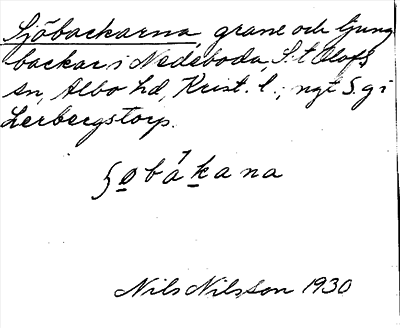 Sjöbackarna, grane och ljung
backar i Nedeboda, S:t Olofs
sn, Albo hd, Krist. l.; ngt S.g i
Lerbergstorp.
bákana
Nils Nilsson 1930